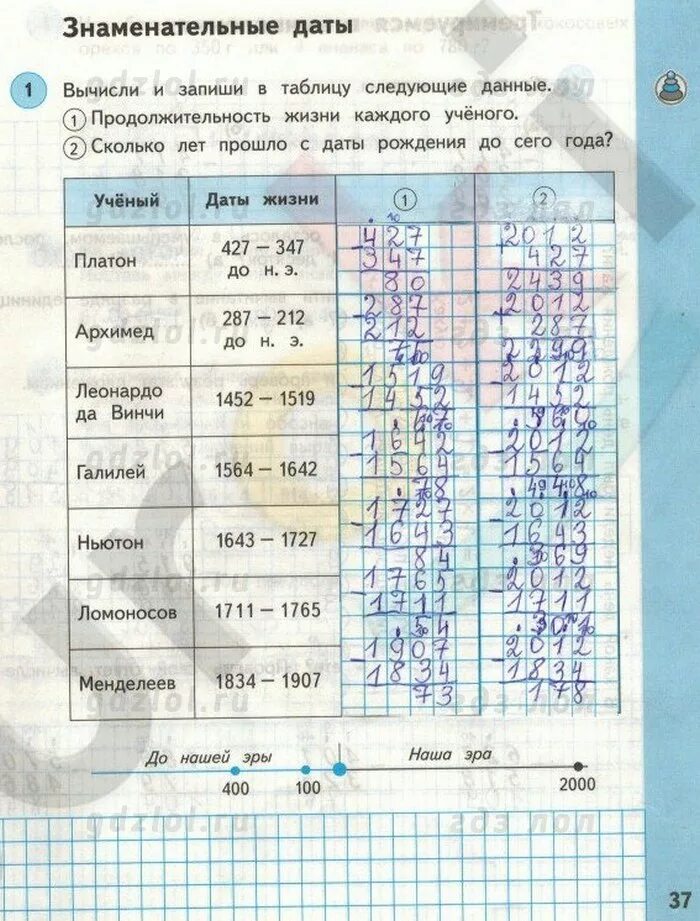 Знаменательные даты
1 Вычисли и запиши в таблицу следующие данные.
1 Продолжительность жизни каждого учёного.
2 Сколько лет прошло с даты рождения до сего года?
Учёный Даты жизни 1 2
Платон 427 – 347 до н. э.
427
347
80
2012
427
2439
Архимед 287 – 212 до н. э.
287
212
2012
287
2299
Леонардо да Винчи 1452 – 1519
1519
1452
67
2012
1452
560
Галилей 1564 – 1642
1642
1564
78
2012
1564
448
Ньютон 1643 – 1727
1727
1643
84
2012
1643
369
Ломоносов 1711 – 1765
1765
1711
54
2012
1711
301
Менделеев 1834 – 1907
1907
1834
73
2012
1834
178
До нашей эры Наша эра
400 100 2000
gdzlol.ru
гдз лол
37